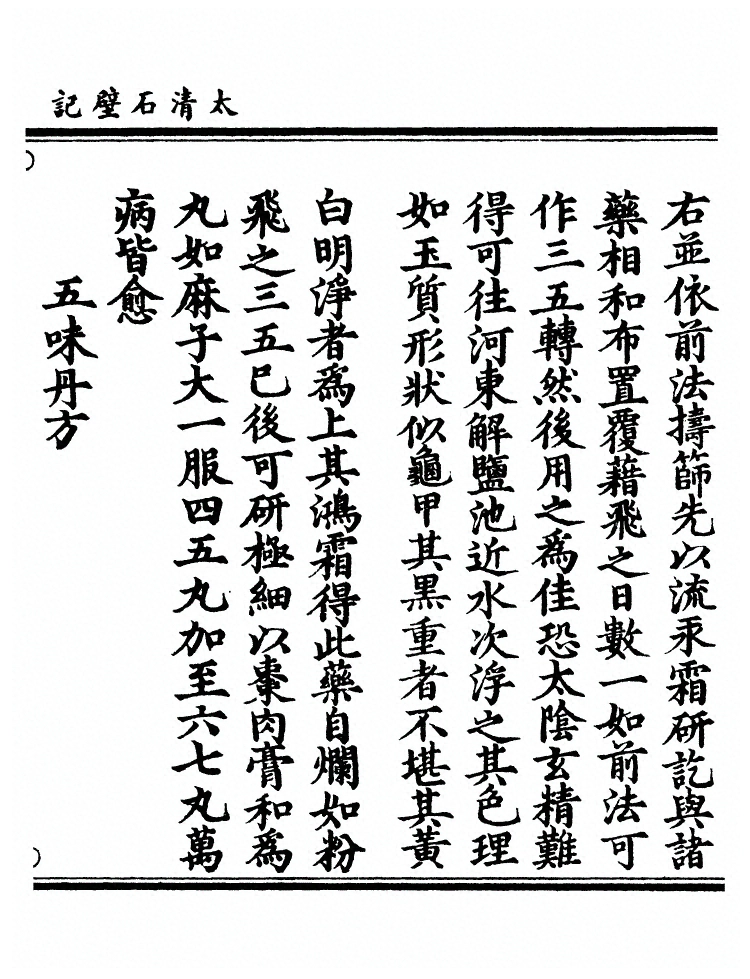 太清石壁記
右並依前法擣篩先以流汞霜研訖與諸
藥相和布置覆藉飛之日數一如前法可
作三五轉然後用之為佳恐太陰玄精難
得可往河東解鹽池近水次浮之其色理
如玉質形狀似龜甲其黑重者不堪其黃
白明淨者為上其鴻霜得此藥自爛如粉
飛之三五巳後可研極細以棗肉膏和為
丸如麻子大一服四五丸加至六七丸萬
病皆愈
五味丹方